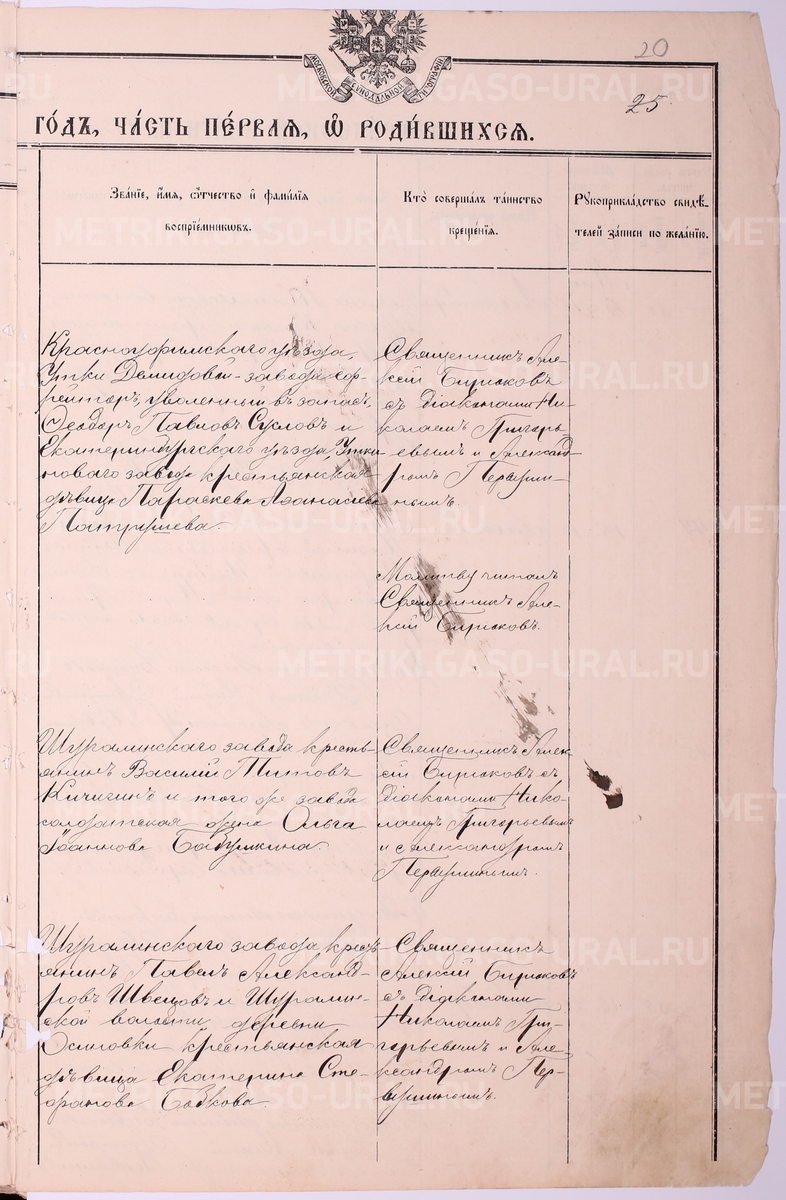 20
25
МОСКОВСКОЙ СИНОДАЛЬНОЙ ТИПОГРАФИИ
ГО́ДЪ, ЧА́СТЬ ПЕ́РВАЯ, Ѽ РОДИ́ВШИХСЯ.
Зва́нїе, и҆́мя, ѻ҆́тчество и҆ фамн́лїя
воспрїе́мникѡвъ.
Кто̀ соверша́лъ та́инство
креще́нїя.
Рꙋкоприкла́дство свидѣ́-
телей за́писи по жела́нїю.
Красноуфимскаго уѣзда,
Утки Демидовой завода еф-
рейторъ, уволенный въ запасъ,
Ѳеодоръ Павловъ Сусловъ и
Екатеринбургскаго уѣзда, Утки
новаго завода крестьянская
дѣвица Параскева Аѳанасіева
Патрушева.
Священникъ Але-
ксій Бирюковъ
съ діаконами Ни-
колаемъ Григорь-
евымъ и Александ-
ромъ Первуши-
нымъ.
Молитву читалъ
Священникъ Але-
ксій Бирюковъ.
Шуралинскаго завода кресть-
янинъ Василій Титовъ
Кичигинъ и того же завода
солдатская жена Ольга
Іоаннова Бабушкина.
Священникъ Алек-
сій Бирюковъ съ
діаконами Нико-
лаемъ Григорьевымъ
и Александромъ
Первушинымъ.
Шуралинскаго завода крест-
янинъ Павелъ Александ-
ровъ Швецовъ и Шуралин-
ской волости деревни
Осиновки крестьянская
дѣвица Екатерина Сте-
фанова Бабкова.
Священникъ
Алексій Бирюковъ
съ діаконами
Николаемъ Гри-
горьевымъ и Але-
ксандромъ Пер-
вушинымъ.